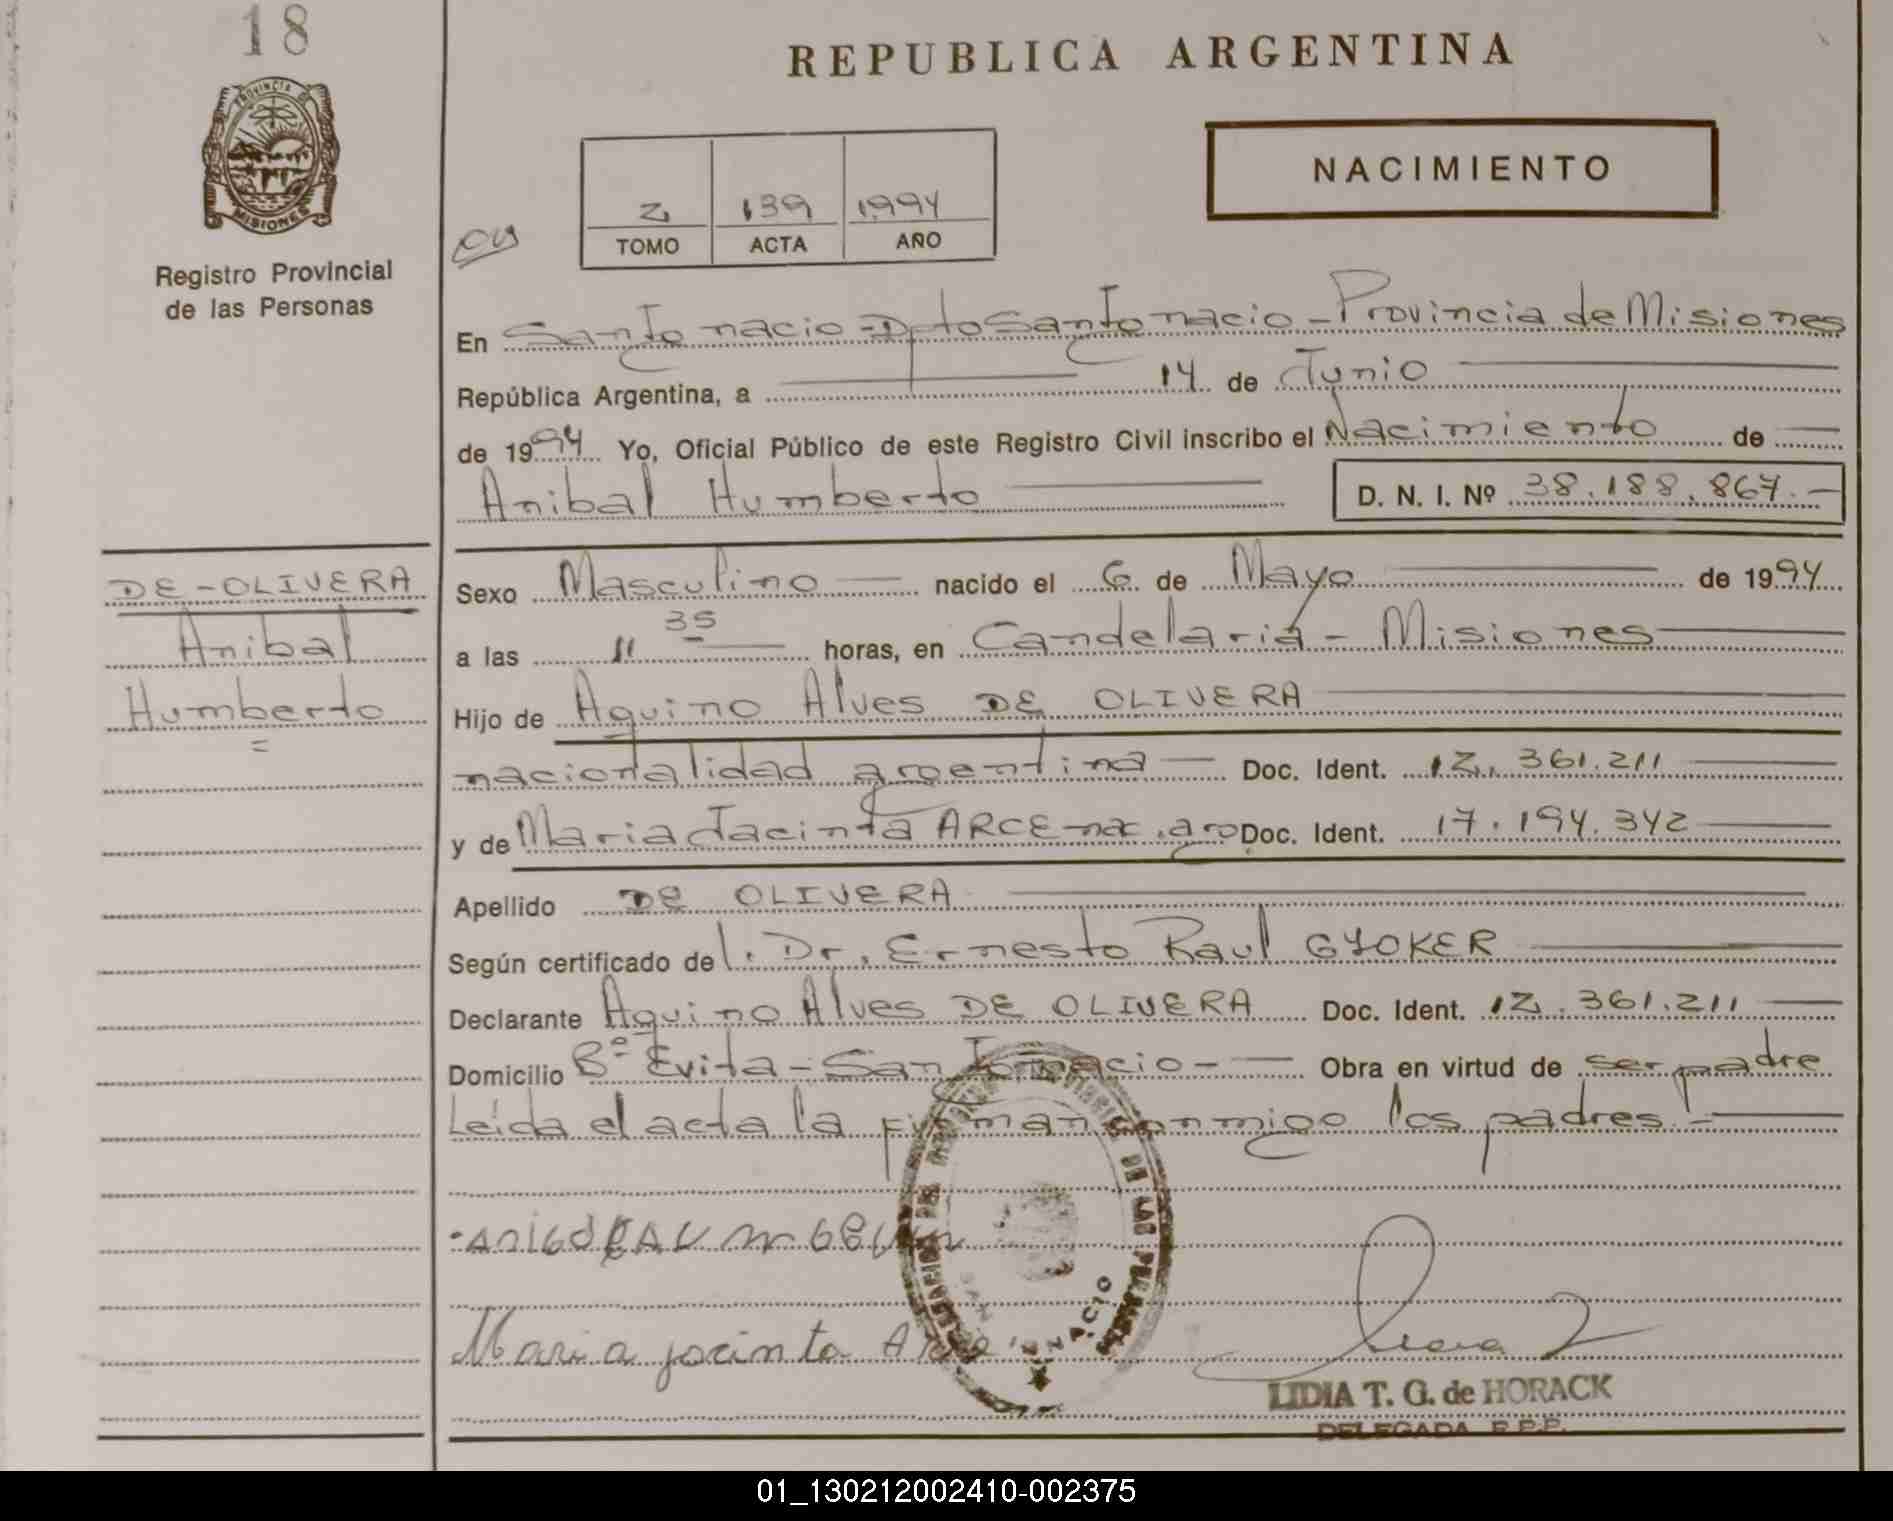 18
REPUBLICA ARGENTINA
PROVINCIA DE
MISIONES
Registro Provincial
de las Personas
NACIMIENTO
2 139 1994
TOMO ACTA AÑO
En San Ignacio - Dpto San Ignacio - Provincia de Misiones
República Argentina, a 14 de Junio
de 1994 Yo, Oficial Público de este Registro Civil inscribo el Nacimiento de
Anibal Humberto D. N. I. Nº 38.188.867.-
DE-OLIVERA
Anibal
Humberto
Sexo Masculino nacido el 6 de Mayo de 1994
a las 11 35 horas, en Candelaria - Misiones
Hijo de Aquino Alves DE OLIVERA
nacionalidad argentina Doc. Ident. 12.361.211
y de Maria Jacinta ARCE nac. arg Doc. Ident. 17.194.342
Apellido DE OLIVERA
Según certificado del. Dr. Ernesto Raul GYOKER
Declarante Aquino Alves DE OLIVERA Doc. Ident. 12.361.211
Domicilio Bº Evita - San Ignacio - Obra en virtud de ser padre
Leida el acta la firman conmigo los padres.-
DE LAS PERSONAS
SAN IGNACIO
Maria jacinta Arce
LIDIA T. G. de HORACK
DELEGADA R.P.P.
01_130212002410-002375